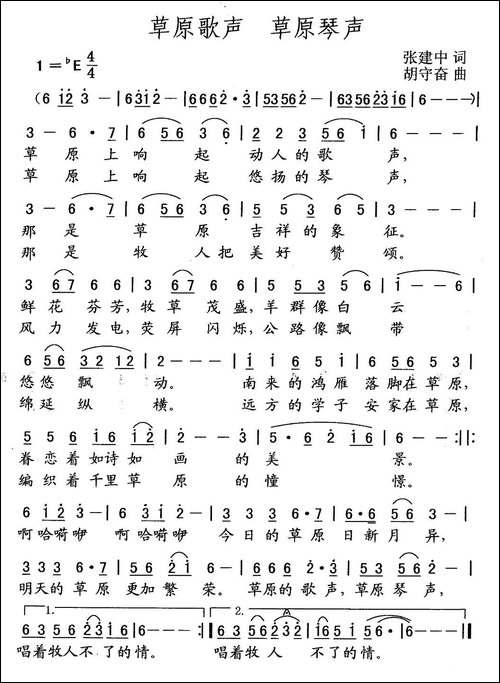 草原歌声 草原琴声
1=♭E 4/4
张建中 词
胡守奋 曲
(6 1̇2̇ 3̇ - | 6 31̇ 6 - | 6 6 6 2̇·3̇ | 535 6 2̇ - | 5356 2̇3̇1̇6 | 6 - - -)|
3 - 6·7 | 6 56 3 6 | 2 2 3 56 | 6 - - - |
草 原 上 响 起 动 人 的 歌 声,
草 原 上 响 起 悠 扬 的 琴 声,
3 - 6·7 | 6 56 3 6 | 5 5 3 65 | 3 - - - |
那 是 草 原 吉 祥 的 象 征。
那 是 牧 人 把 美 好 赞 颂。
3 67 6 6 | 3 67 6 6 | 6 5 3 5 6 | 1̇ - - 6 |
鲜 花 芬 芳, 牧 草 茂 盛, 羊 群 像 白 云
风 力 发 电, 荧 屏 闪 烁, 公 路 像 飘 带
6 56 32 12 | 2 - - - | 1̇ 1̇ 6 5 1̇ | 6 5 6 5 3 |
悠 悠 飘 动。 南 来 的 鸿 雁 落 脚 在 草 原,
绵 延 纵 横。 远 方 的 学 子 安 家 在 草 原,
5 5 56 1̇6 1̇2̇ | 2̇ - - 3̇ | 5·6 2̇ 1̇6 | 6 - - - :||:
眷 恋 着 如 诗 如 画 的 美 景。
编 织 着 千 里 草 原 的 憧 憬。
6 1̇2̇ 3̇ - | 6 1̇2̇ 3̇ - | 3 3 3 6·7 | 6·6 56 3 - |
啊 哈 嗬 咿 啊 哈 嗬 咿 今 日 的 草 原 日 新 月 异,
333 6·7 | 5 5 3 6 - | 2̇2̇2̇ 2̇·3̇ | 5 5 3 2̇1̇ - |
明天的 草 原 更 加 繁 荣。 草原的 歌 声, 草 原 琴 声,
1.
2.
63 56 2̇2̇3̇1̇ 6 | 6 - - - :|| 63 56 2̇ 2̇3̇2̇ | 1̇6 1̇5 56· | 6 - - - ||
唱着 牧人 不 了 的 情。 唱着 牧 人 不 了 的 情。